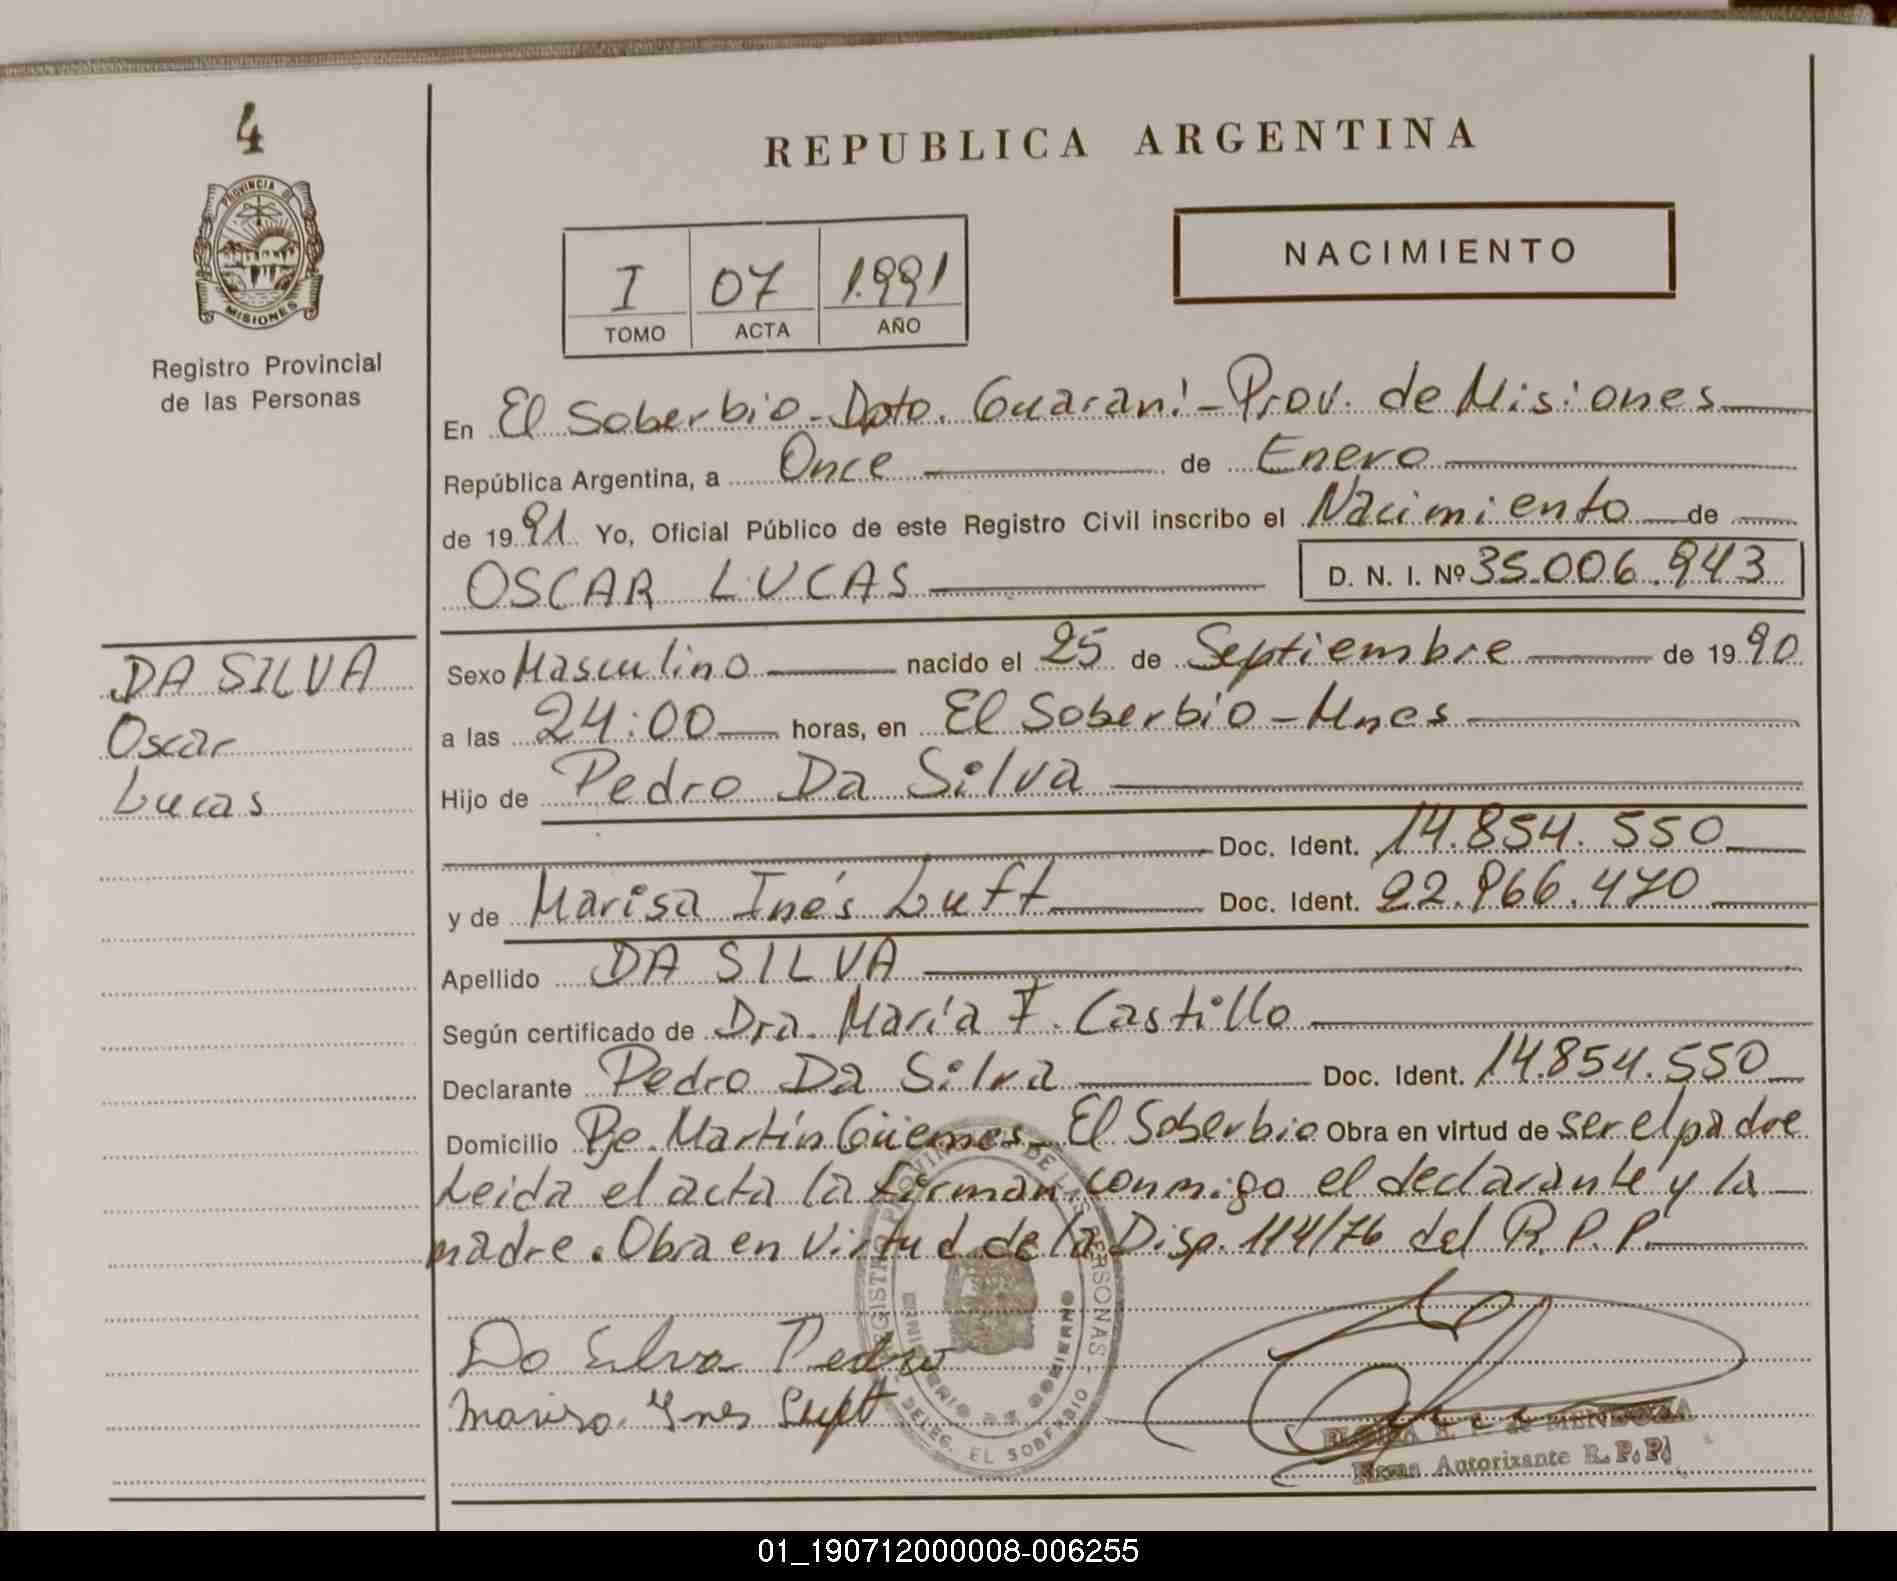 4
PROVINCIA DE
MISIONES
Registro Provincial
de las Personas
REPUBLICA ARGENTINA
NACIMIENTO
I 07 1.991
TOMO ACTA AÑO
En El Soberbio - Dpto. Guaraní - Prov. de Misiones
República Argentina, a Once de Enero
de 1991 Yo, Oficial Público de este Registro Civil inscribo el Nacimiento de
OSCAR LUCAS D. N. I. Nº 35.006.943
DA SILVA
Oscar
Lucas
Sexo Masculino nacido el 25 de Septiembre de 1990
a las 24:00 horas, en El Soberbio - Mnes
Hijo de Pedro Da Silva
Doc. Ident. 14.854.550
y de Marisa Inés Luft Doc. Ident. 22.966.470
Apellido DA SILVA
Según certificado de Dra. María F. Castillo
Declarante Pedro Da Silva Doc. Ident. 14.854.550
Domicilio Pje. Martín Güemes - El Soberbio Obra en virtud de ser el padre
Leida el acta la firman conmigo el declarante y la
madre. Obra en virtud de la Disp. 114/76 del R. P. P.
REGISTRO PROVINCIAL DE LAS PERSONAS
MINISTERIO DE GOBIERNO
DELEG. EL SOBERBIO
Da Silva Pedro
Marisa Ynes Luft
de MENDOZA
Firma Autorizante R. P. P.
01_190712000008-006255